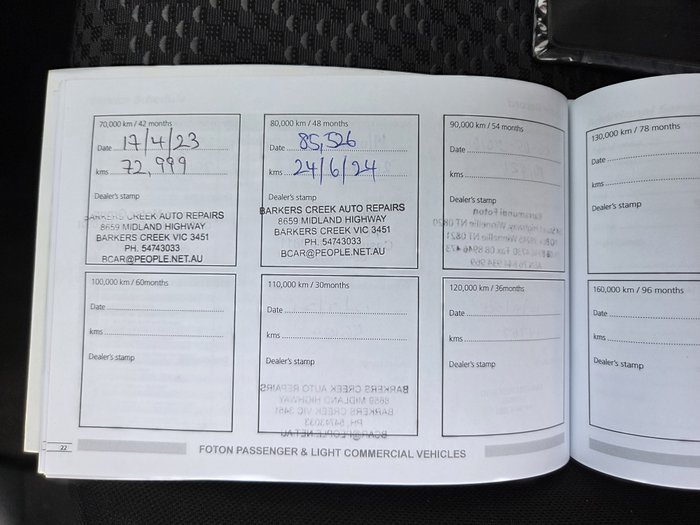 70,000 km / 42 months
Date 17/4/23
kms 72,999
Dealer's stamp
BARKERS CREEK AUTO REPAIRS
8659 MIDLAND HIGHWAY
BARKERS CREEK VIC 3451
PH. 54743033
BCAR@PEOPLE.NET.AU
80,000 km / 48 months
Date 85,526
kms 24/6/24
Dealer's stamp
BARKERS CREEK AUTO REPAIRS
8659 MIDLAND HIGHWAY
BARKERS CREEK VIC 3451
PH. 54743033
BCAR@PEOPLE.NET.AU
90,000 km / 54 months
Date
kms
Dealer's stamp
100,000 km / 60months
Date
kms
Dealer's stamp
110,000 km / 30months
Date
kms
Dealer's stamp
120,000 km / 36months
Date
kms
Dealer's stamp
22
FOTON PASSENGER & LIGHT COMMERCIAL VEHICLES
130,000 km / 78 months
Date
kms
Dealer's stamp
160,000 km / 96 months
Date
kms
Dealer's stamp